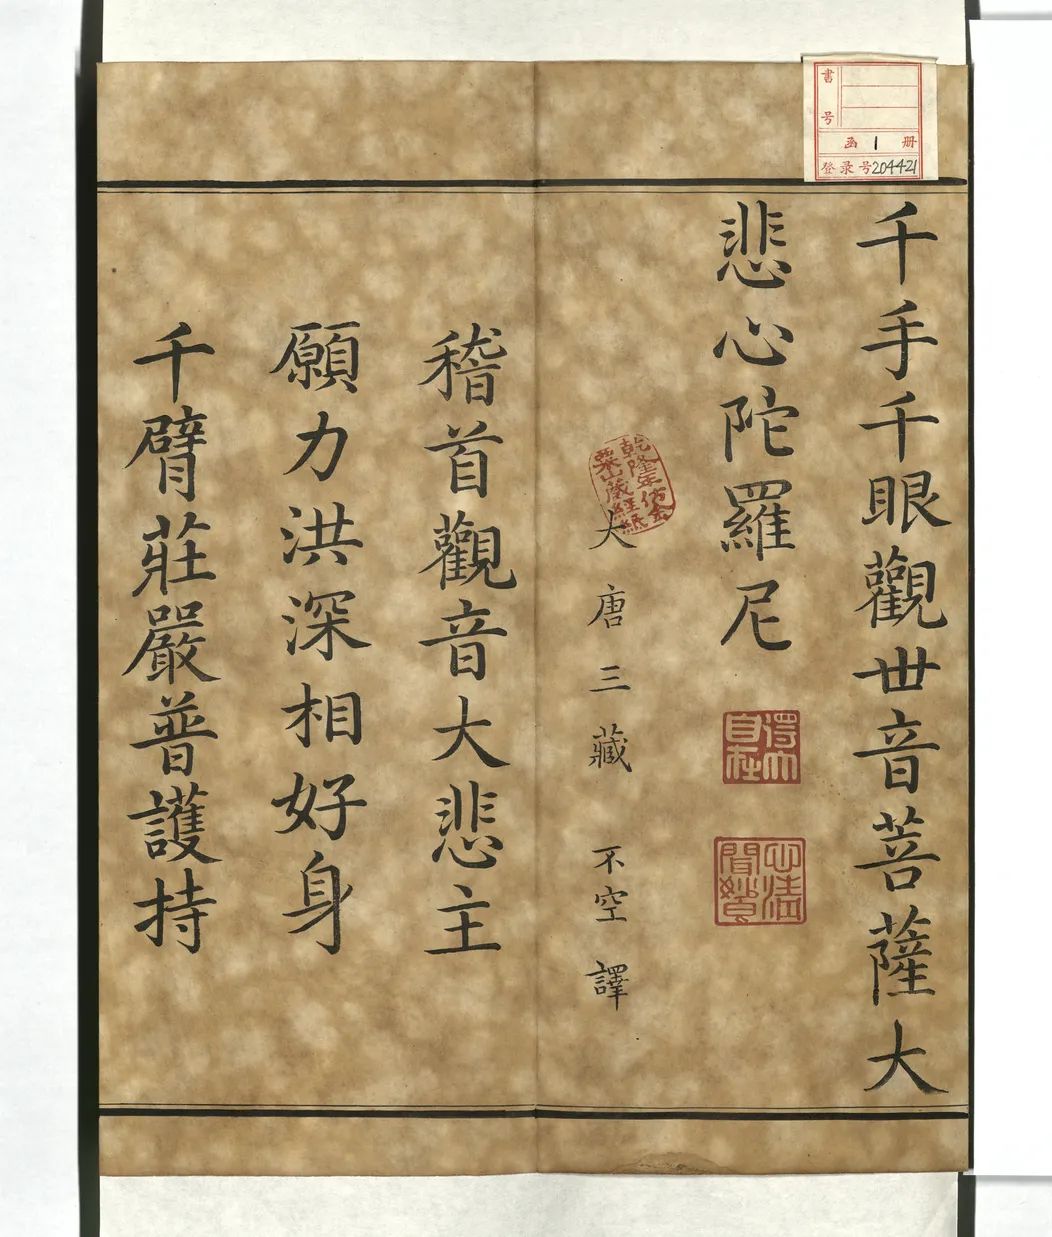 千手千眼觀世音菩薩大
悲心陀羅尼
得大
自在
心清
聞妙香
乾隆年仿金
粟山藏經紙
大唐三藏不空譯
稽首觀音大悲主
願力洪深相好身
千臂莊嚴普護持
書号
函 1 册
登录号204421